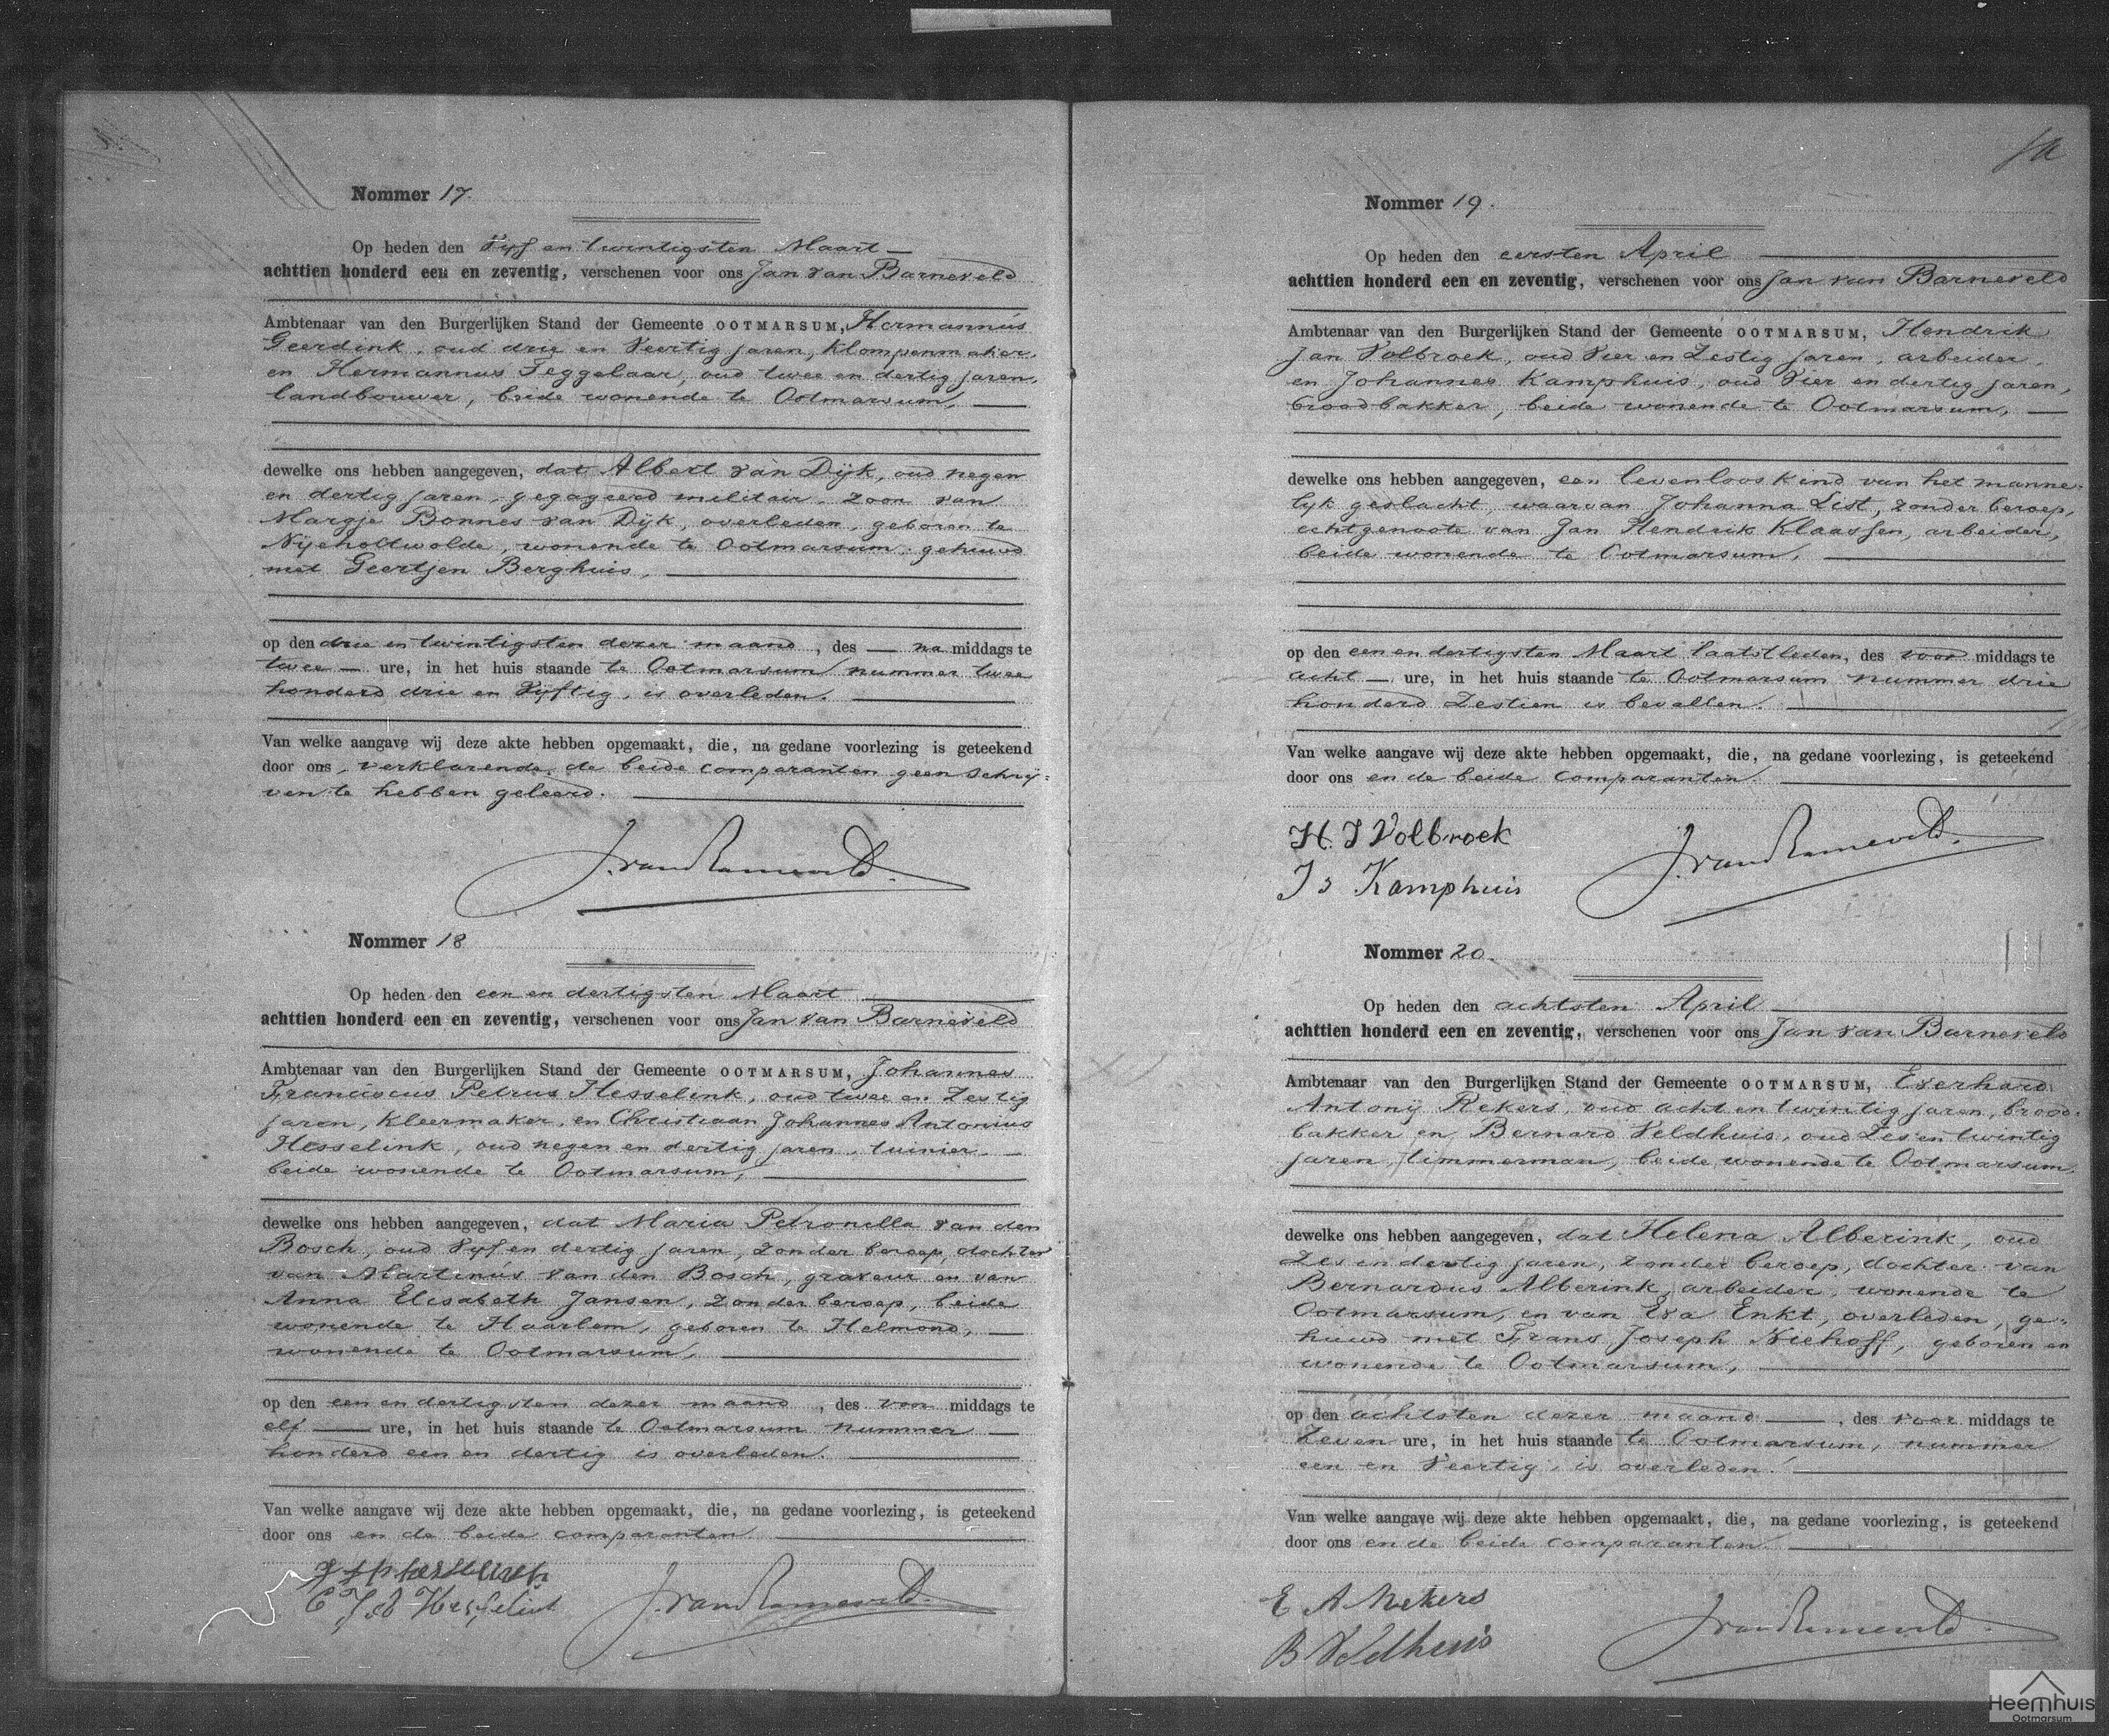 Nommer 17.
Op heden den Vyf en twintigsten Maart
achttien honderd een en zeventig, verschenen voor ons Jan van Barneveld
Ambtenaar van den Burgerlijken Stand der Gemeente OOTMARSUM, Hermannus
Geerdink, oud drie en Veertig jaren, Klompenmaker,
en Hermannus Teggelaar, oud twee en dertig jaren,
landbouwer, beide wonende te Ootmarsum,
dewelke ons hebben aangegeven, dat Albert van Dijk, oud negen
en dertig jaren, gegageerd militair, zoon van
Margje Bonnes van Dijk, overleden, geboren te
Nijeholtwolde, wonende te Ootmarsum, gehuwd
met Geertjen Berghuis,
op den drie en twintigsten dezer maand, des na middags te
twee ure, in het huis staande te Ootmarsum nummer twee
honderd drie en Vijftig, is overleden.
Van welke aangave wij deze akte hebben opgemaakt, die, na gedane voorlezing is geteekend
door ons, verklarende de beide comparanten geen schrij=
ven te hebben geleerd.
J. van Barneveld.
Nommer 18
Op heden den een en dertigsten Maart
achttien honderd een en zeventig, verschenen voor ons Jan van Barneveld
Ambtenaar van den Burgerlijken Stand der Gemeente OOTMARSUM, Johannes
Franciscus Petrus Hesselink, oud twee en Zestig
jaren, Kleermaker, en Christiaan Johannes Antonius
Hesselink, oud negen en dertig jaren, tuinier,
beide wonende te Ootmarsum,
dewelke ons hebben aangegeven, dat Maria Petronella van den
Bosch, oud Vyf en dertig jaren, zonder beroep, dochter
van Martinus van den Bosch, graveur en van
Anna Elisabeth Jansen, zonder beroep, beide
wonende te Haarlem, geboren te Helmond,
wonende te Ootmarsum,
op den een en dertigsten dezer maand, des voor middags te
elf ure, in het huis staande te Ootmarsum nummer
honderd een en dertig is overleden.
Van welke aangave wij deze akte hebben opgemaakt, die, na gedane voorlezing, is geteekend
door ons en de beide comparanten.
C J A Hesselink
J. van Barneveld.
Nommer 19.
Op heden den eersten April
achttien honderd een en zeventig, verschenen voor ons Jan van Barneveld
Ambtenaar van den Burgerlijken Stand der Gemeente OOTMARSUM, Hendrik
Jan Volbroek, oud Vier en Zestig jaren, arbeider,
en Johannes Kamphuis, oud Vier en dertig jaren,
broodbakker, beide wonende te Ootmarsum,
dewelke ons hebben aangegeven, een levenloos kind van het manne=
lyk geslacht, waarvan Johanna List, zonder beroep,
echtgenoote van Jan Hendrik Klaassen, arbeider,
beide wonende te Ootmarsum,
op den een en dertigsten Maart laatstleden, des voor middags te
acht ure, in het huis staande te Ootmarsum nummer drie
honderd Zestien is bevallen.
Van welke aangave wij deze akte hebben opgemaakt, die, na gedane voorlezing, is geteekend
door ons en de beide comparanten.
H. J Volbroek
Js Kamphuis
J. van Barneveld.
Nommer 20.
Op heden den achtsten April
achttien honderd een en zeventig, verschenen voor ons Jan van Barneveld
Ambtenaar van den Burgerlijken Stand der Gemeente OOTMARSUM, Everhard
Antonij Rekers, oud acht en twintig jaren, brood=
bakker en Bernard Veldhuis, oud Zes en twintig
jaren, timmerman, beide wonende te Ootmarsum,
dewelke ons hebben aangegeven, dat Helena Alberink, oud
Zes en dertig jaren, zonder beroep, dochter van
Bernardus Alberink, arbeider, wonende te
Ootmarsum, en van Eva Enkt, overleden, ge=
huwd met Frans Joseph Niehoff, geboren en
wonende te Ootmarsum,
op den achtsten dezer maand, des voor middags te
Zeven ure, in het huis staande te Ootmarsum, nummer
een en Veertig, is overleden.
Van welke aangave wij deze akte hebben opgemaakt, die, na gedane voorlezing, is geteekend
door ons en de beide comparanten.
E A Rekers
B Veldhuis
J van Barneveld.
Heemhuis
Ootmarsum